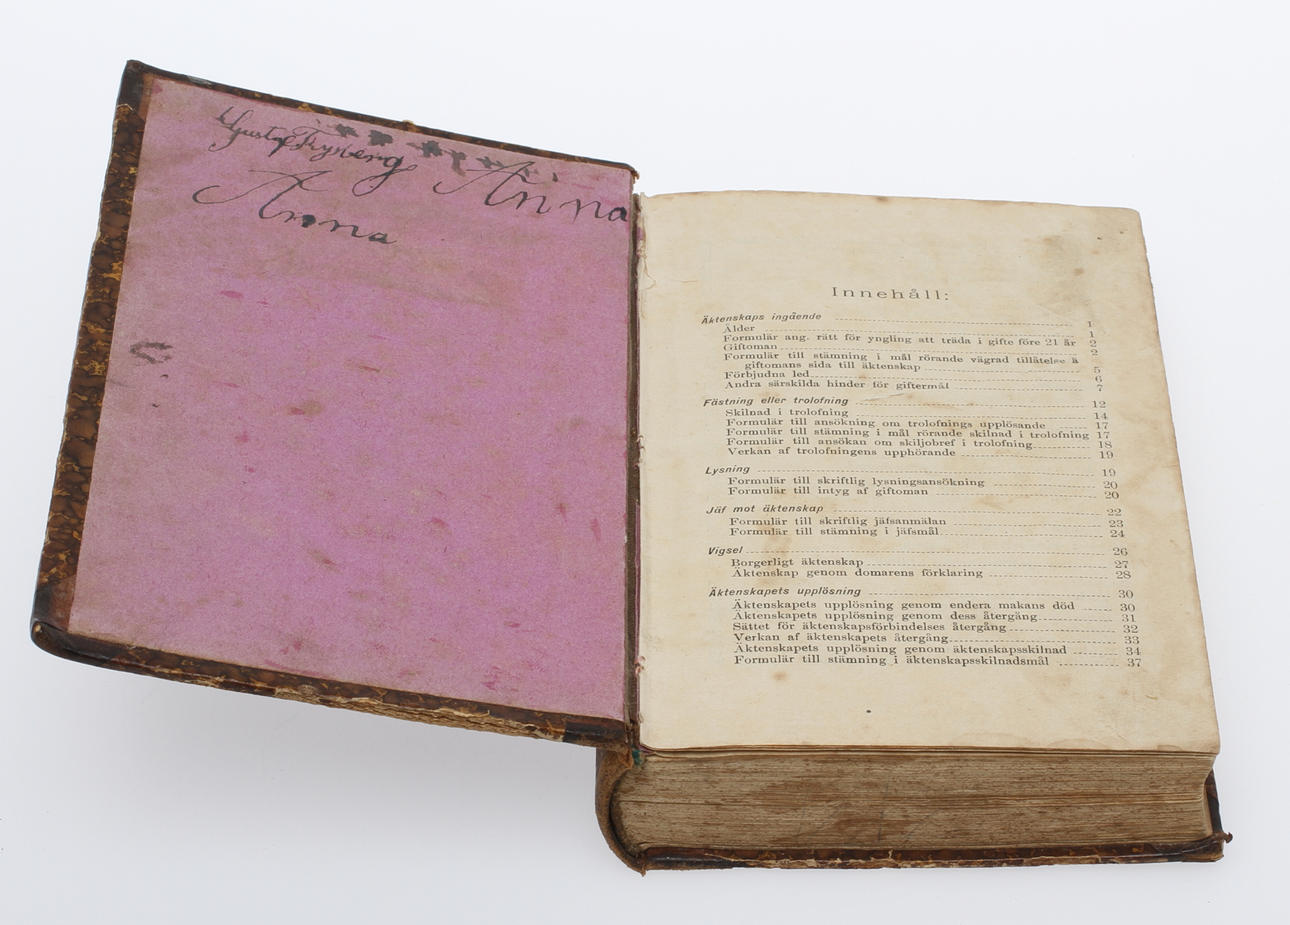 Gustaf
Anna
Anna
Innehåll:
Äktenskaps ingående 1
Ålder 1
Formulär ang. rätt för yngling att träda i gifte före 21 år 2
Giftoman 2
Formulär till stämning i mål rörande vägrad tillåtelse å
giftomans sida till äktenskap 5
Förbjudna led 6
Andra särskilda hinder för giftermål 7
Fästning eller trolofning 12
Skilnad i trolofning 14
Formulär till ansökning om trolofnings upplösande 17
Formulär till stämning i mål rörande skilnad i trolofning 17
Formulär till ansökan om skiljobref i trolofning 18
Verkan af trolofningens upphörande 19
Lysning 19
Formulär till skriftlig lysningsansökning 20
Formulär till intyg af giftoman 20
Jäf mot äktenskap 22
Formulär till skriftlig jäfsanmälan 23
Formulär till stämning i jäfsmål 24
Vigsel 26
Borgerligt äktenskap 27
Äktenskap genom domarens förklaring 28
Äktenskapets upplösning 30
Äktenskapets upplösning genom endera makans död 30
Äktenskapets upplösning genom dess återgång 31
Sättet för äktenskapsförbindelses återgång 32
Verkan af äktenskapets återgång 33
Äktenskapets upplösning genom äktenskapsskilnad 34
Formulär till stämning i äktenskapsskilnadsmål 37